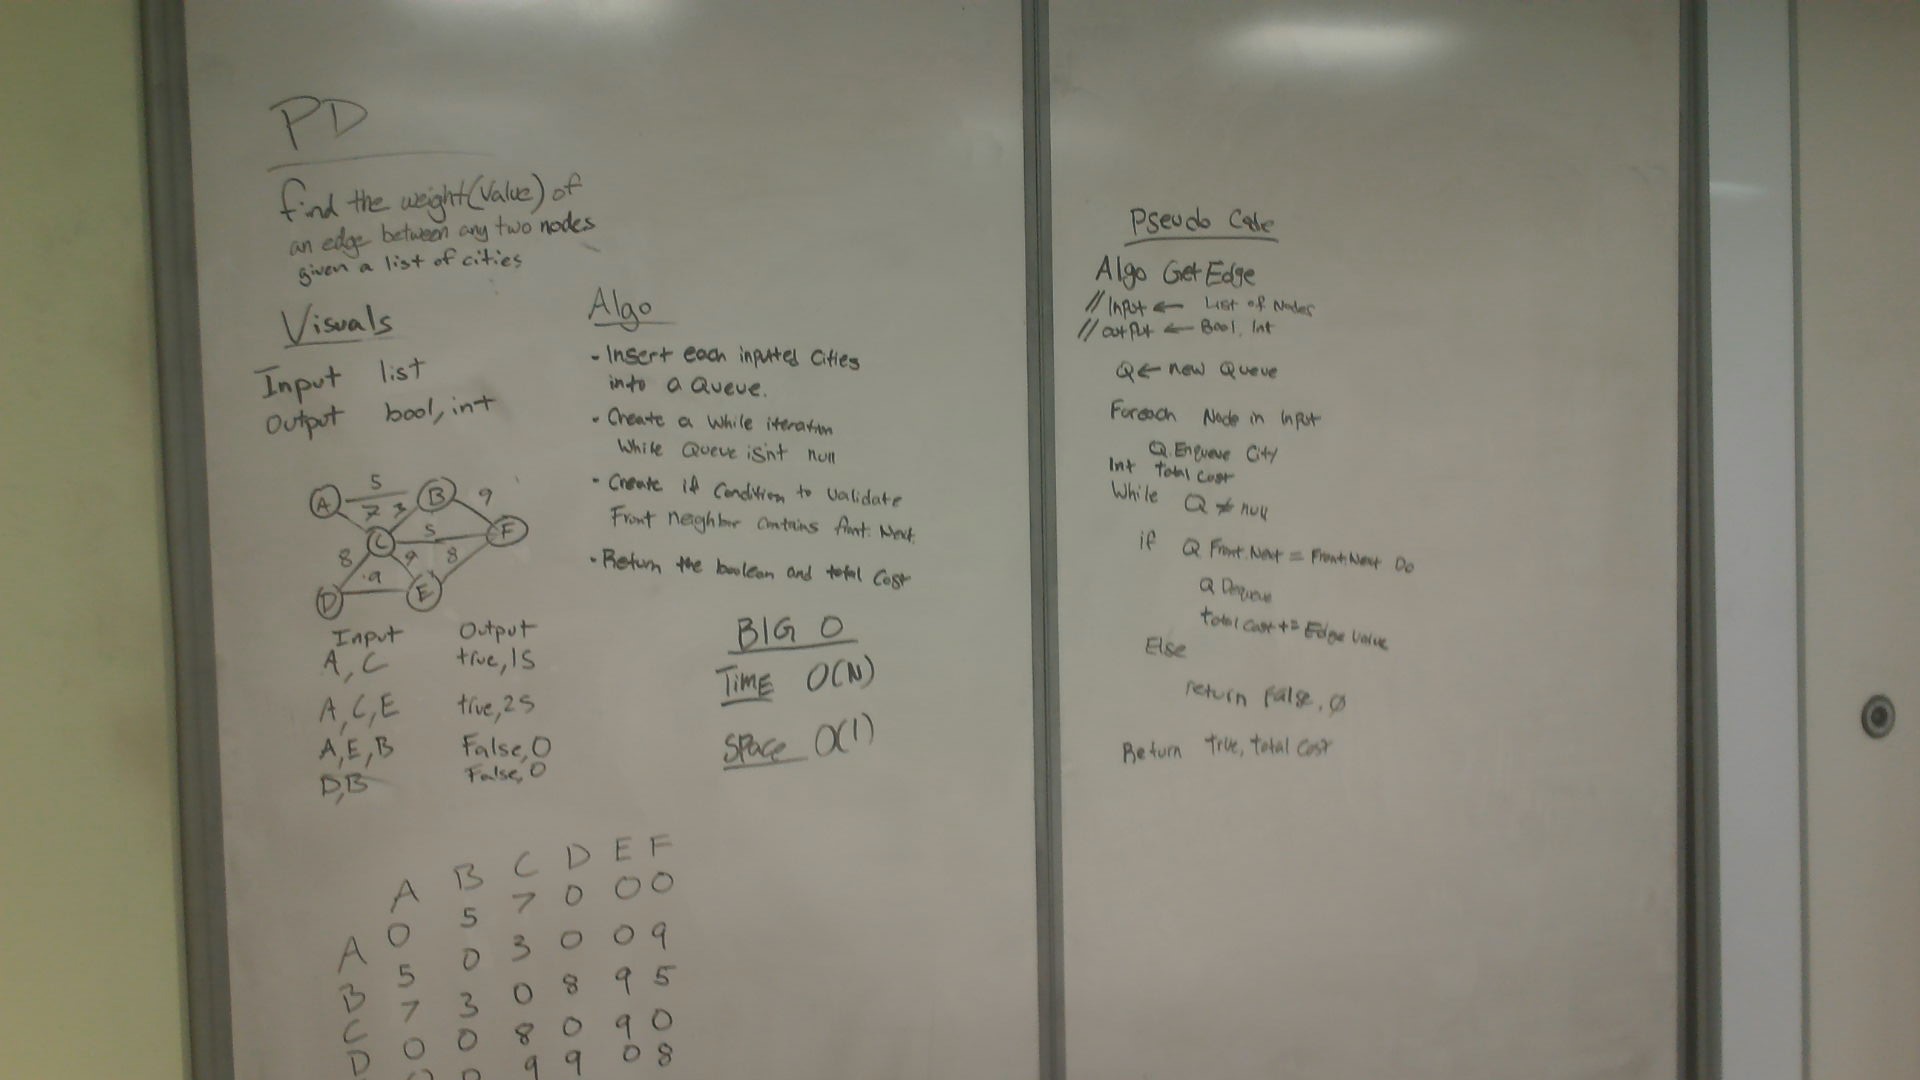 PD
find the weight(value) of
an edge between any two nodes
given a list of cities
Visuals
Input list
Output bool, int
A 5 B 9
7 3
C 5 F
8 9 8
9
D E
Input Output
A, C true, 15
A, C, E true, 25
A, E, B False, 0
D, B False, 0
A B C D E F
A 0 5 7 0 0 0
B 5 0 3 0 0 9
C 7 3 0 8 9 5
D 0 0 8 0 9 0
9 9 0 8
Algo
- Insert each inputted Cities
into a Queue.
- Create a While iteration
While Queue isn't null
- Create if Condition to validate
Front neighbor contains front. Next
- Return the boolean and total Cost
BIG O
TIME O(N)
SPACE O(1)
Pseudo Code
Algo GetEdge
// Input ← List of Nodes
// output ← Bool, Int
Q ← new Queue
Foreach Node in Input
Q. Enqueue City
Int total Cost
While Q ≠ null
if Q Front.Next = Front.Next Do
Q Dequeue
total Cost += Edge Value
Else
return False, Ø
Return True, total Cost